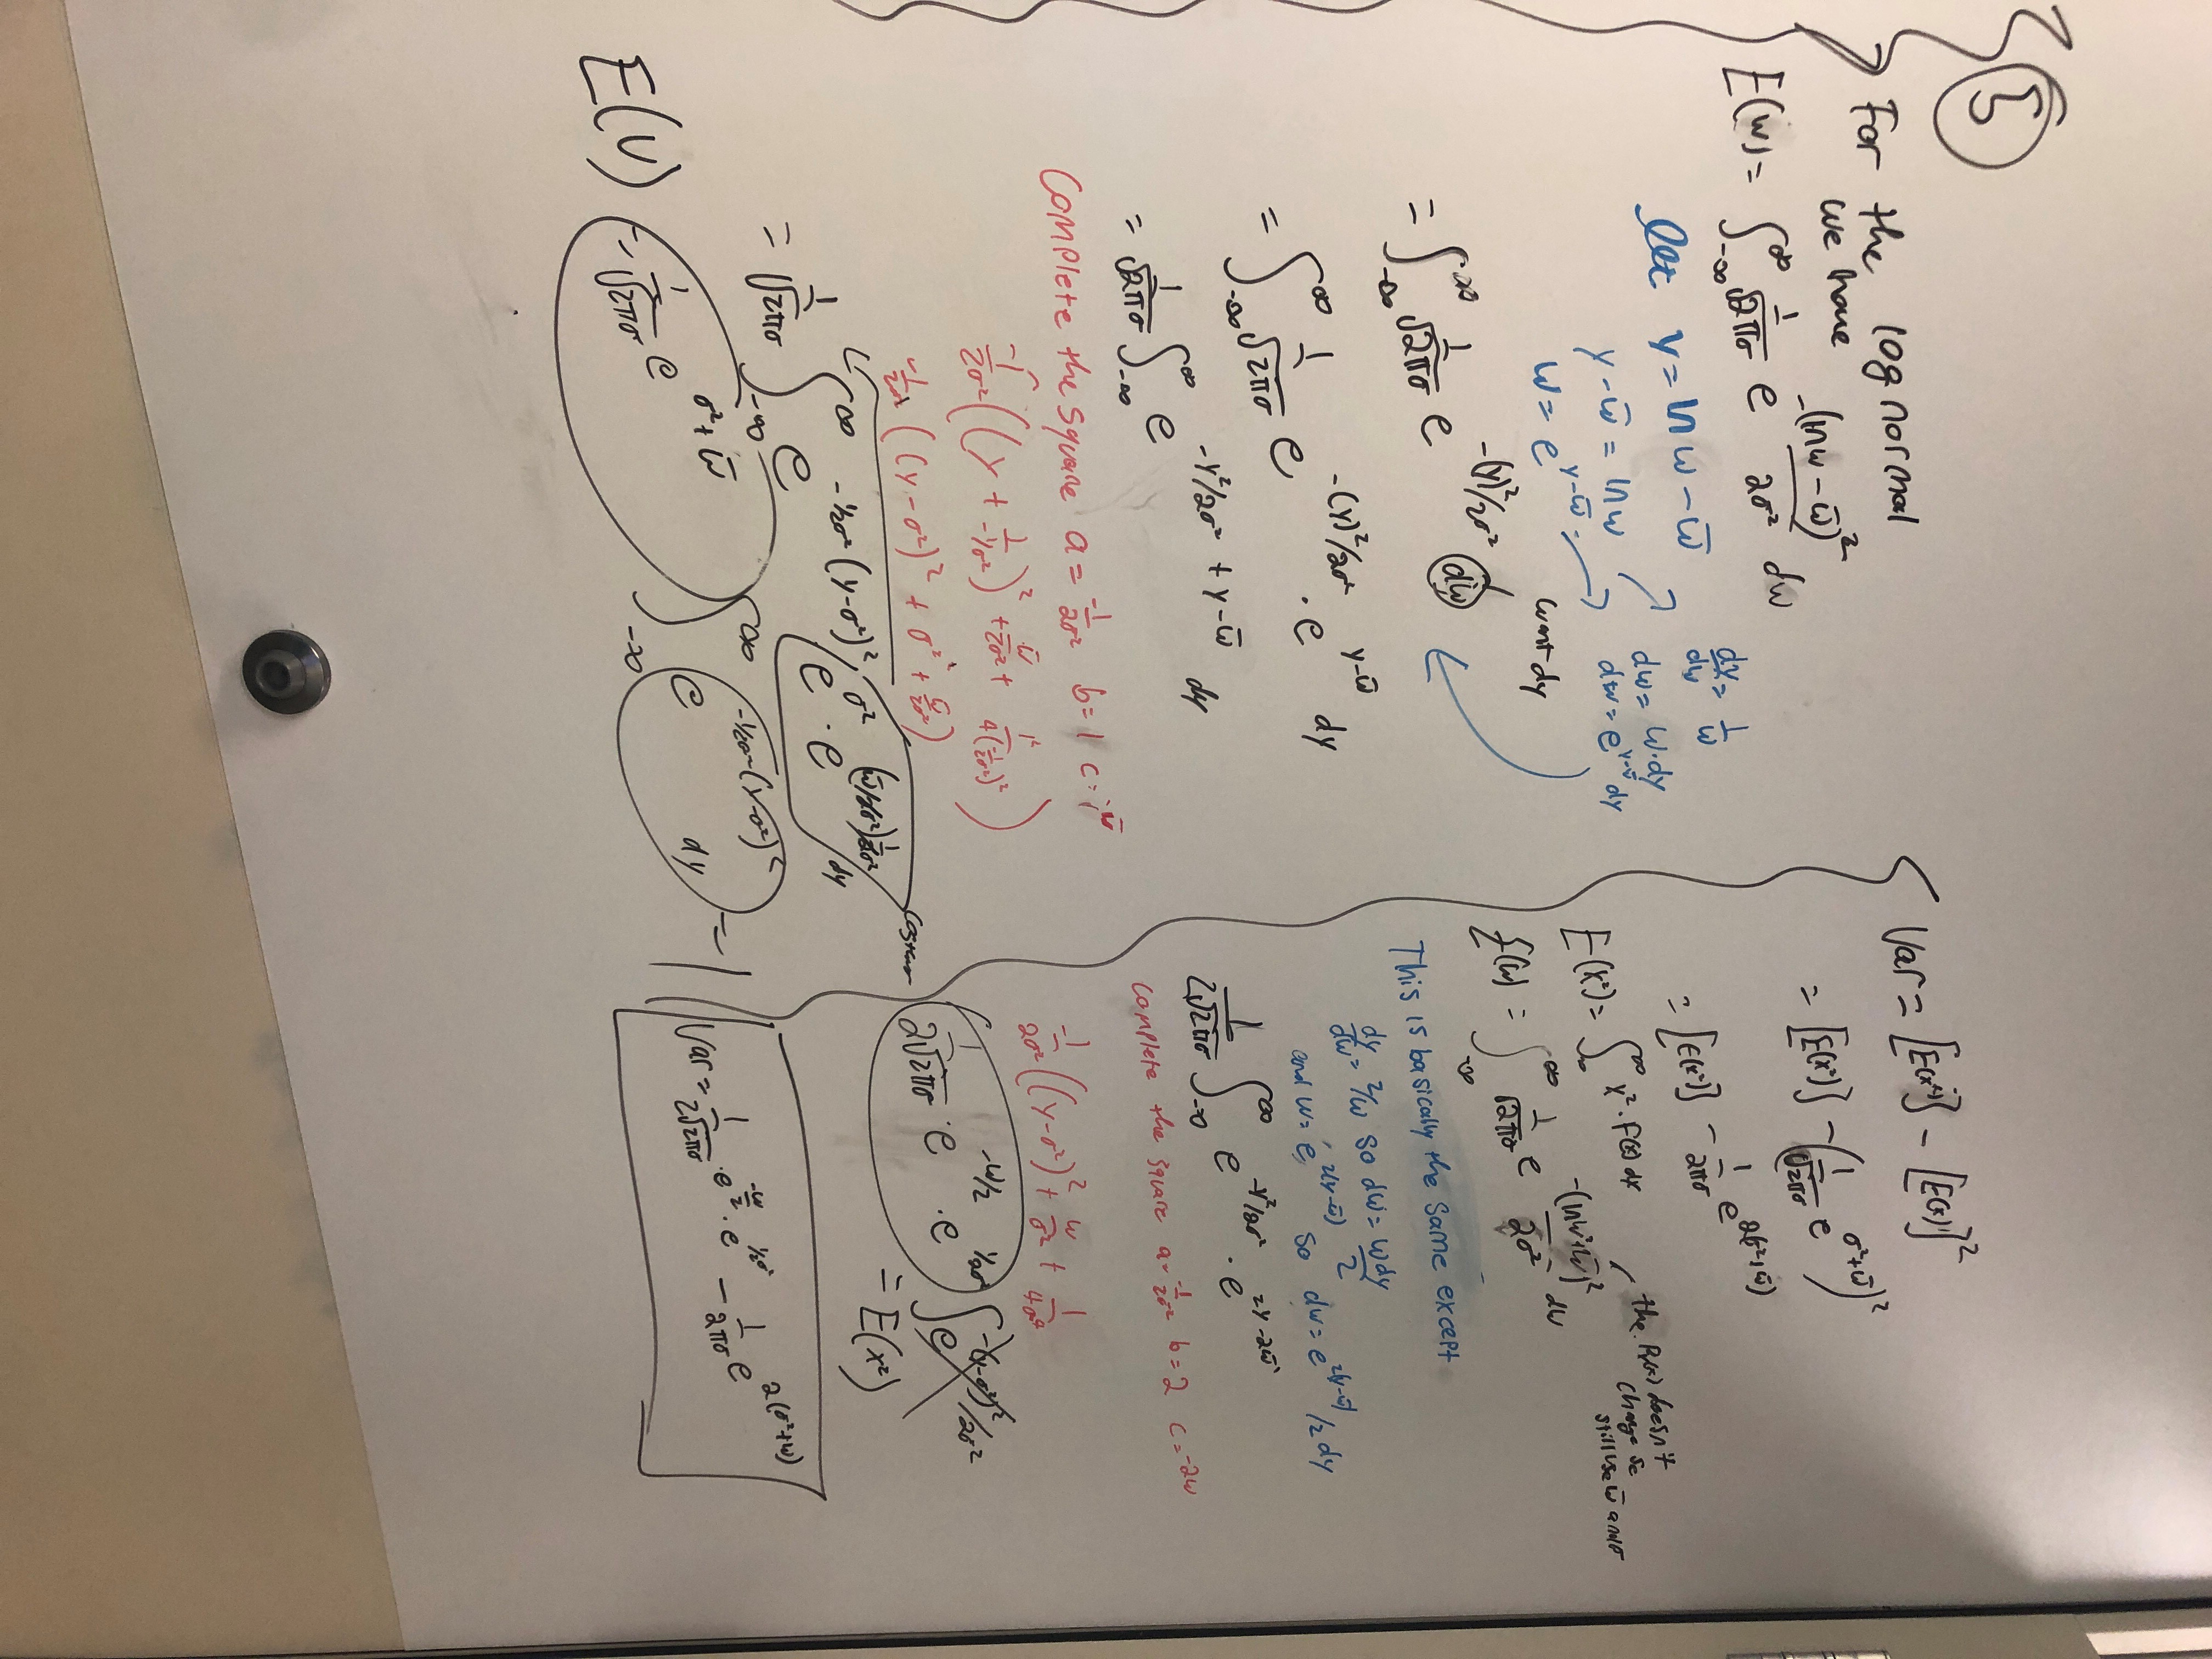 5
For the log normal
we have
E(w) = ∫_{-∞}^{∞} 1/√2πσ e^{-(ln w - w̄)²/2σ²} dw
let y = ln w - w̄
dy/dw = 1/w
y - w̄ = ln w
dw = w·dy
dw = e^{y-w̄} dy
w = e^{y-w̄}
want dy
= ∫_{-∞}^{∞} 1/√2πσ e^{-(y)²/2σ²} dw
= ∫_{-∞}^{∞} 1/√2πσ e^{-(y)²/2σ²} · e^{y-w̄} dy
= 1/√2πσ ∫_{-∞}^{∞} e^{-y²/2σ² + y - w̄} dy
Complete the square a = -1/2σ² b = 1 c = -w̄
-1/2σ² ((y + 1/(-1/σ²))² + w̄/2σ² + 1²/4(-1/2σ²)²)
-1/2σ² ((y-σ²)² + σ² + w̄/2σ²)
= 1/√2πσ ∫_{-∞}^{∞} e^{-1/2σ² (y-σ²)²} e^{σ²} · e^{(w̄/2σ²)1/2σ²} dy
E(U) = 1/√2πσ e^{σ²+w̄} ∫_{-∞}^{∞} e^{-1/2σ² (y-σ²)²} dy = 1
Var = [E(x²)] - [E(x)]²
= [E(x²)] - (1/√2πσ e^{σ²+w̄})²
= [E(x²)] - 1/2πσ e^{2(σ²+w̄)}
the Pr(x) doesn't
change so
still use w̄ and σ
E(x²) = ∫_{-∞}^{∞} x²·F(x) dx
E(w) = ∫_{-∞}^{∞} 1/√2πσ e^{-(ln w²+w̄)²/2σ²} dw
This is basically the same except
dy/dw = 2/w so dw = wdy/2
and w = e^{2(y-w̄)} so dw = e^{2(y-w̄)}/2 dy
1/2√2πσ ∫_{-∞}^{∞} e^{-y²/2σ²} · e^{2y-2w̄}
complete the square a = -1/2σ² b = 2 c = -2w
-1/2σ² ((y-σ²)² + w/σ² + 1/4σ⁴
1/2√2πσ · e^{-w/2} · e^{1/2σ²} ∫ e^{-(y-σ²)²/2σ²}
= E(x²)
Var = 1/2√2πσ · e^{-w/2} · e^{1/2σ²} - 1/2πσ e^{2(σ²+w)}